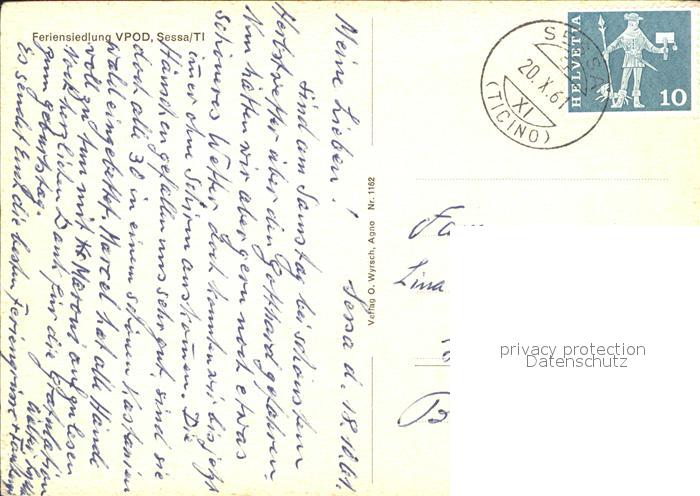 Feriensiedlung VPOD, Sessa/TI
Sessa d. 18.10.61.
Meine Lieben!
Sind am Samstag bei schönstem
Herbstwetter über den Gotthard gefahren.
Nun hätten wir aber gern noch etwas
schöneres Wetter, doch konnten wir bis jetzt
immer ohne Schirm auskommen. Die
Häuschen gefallen uns sehr gut, sind sie
doch alle 30 in einem schönen Kastanien
wald eingebettet. Marcel hat alle Hände
voll zu tun mit Maroni auflesen
Noch herzlichen Dank für die Gratulation
zum Geburtstag.
Es sendet Euch die besten Feriengrüsse
Verlag O. Wyrsch, Agno Nr. 1162
SESSA
20.X.61
XI
(TICINO)
HELVETIA
10
Fa
Lina
B
privacy protection
Datenschutz